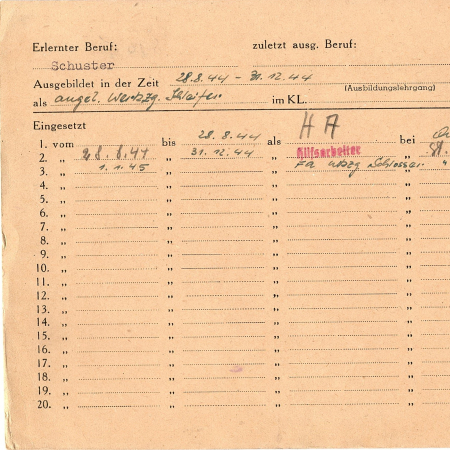 Erlernter Beruf: zuletzt ausg. Beruf:
Schuster
Ausgebildet in der Zeit 28.8.44 - 31.12.44
(Ausbildungslehrgang)
als angel. Werkzg. Schleifer im KL.
Eingesetzt
1. vom „ bis 28.8.44 als H A bei
2. „ 28.8.44 „ 31.12.44 „ Hilfsarbeiter „
3. „ 1.1.45 „ „ Fa Schlosser „
4. „ „ „ „
5. „ „ „ „
6. „ „ „ „
7. „ „ „ „
8. „ „ „ „
9. „ „ „ „
10. „ „ „ „
11. „ „ „ „
12. „ „ „ „
13. „ „ „ „
14. „ „ „ „
15. „ „ „ „
16. „ „ „ „
17. „ „ „ „
18. „ „ „ „
19. „ „ „ „
20. „ „ „ „